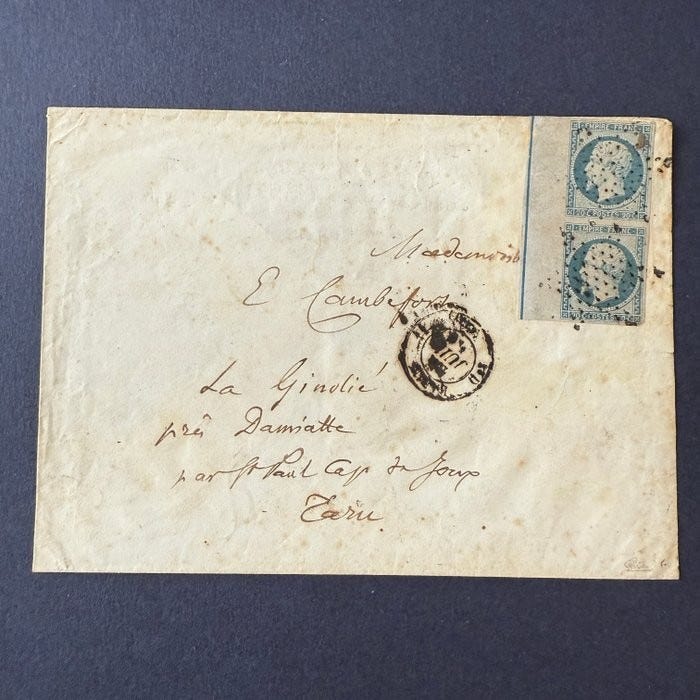 EMPIRE FRANC
20 C POSTES 20 C
EMPIRE FRANC
20 C POSTES 20 C
Mademois
E Cambefort
JUIL
La Ginolié
près Damiatte
par St Paul Cap de Joux
Tarn